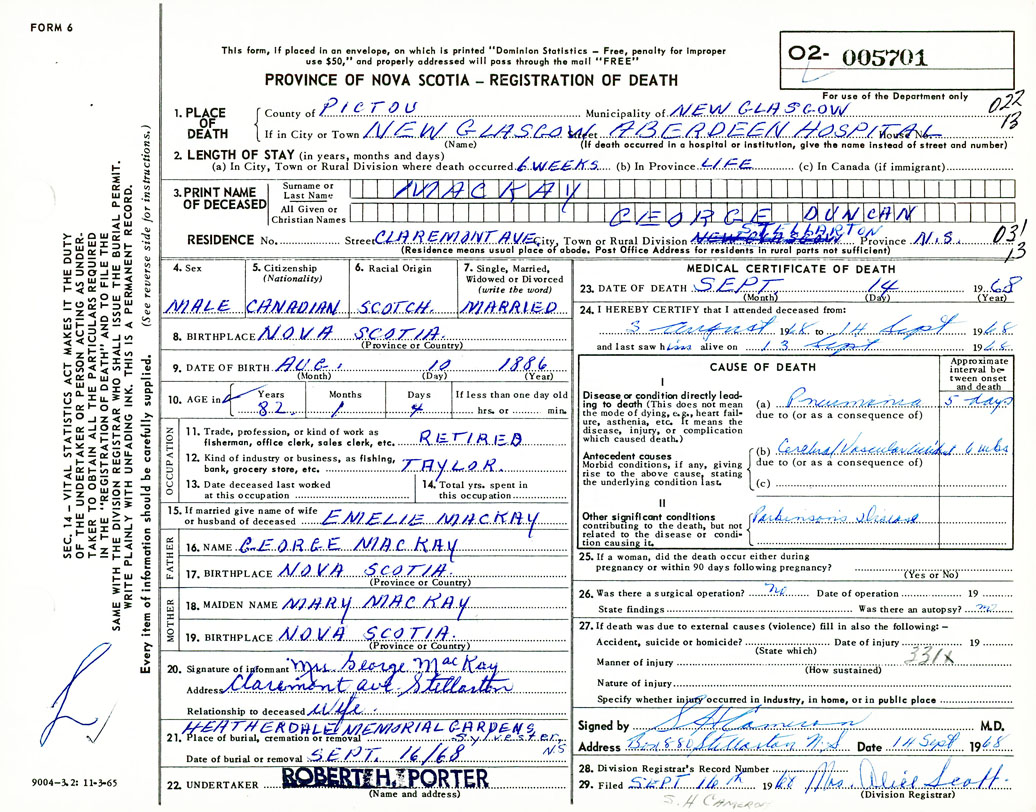 FORM 6
This form, if placed in an envelope, on which is printed "Dominion Statistics – Free, penalty for improper
use $50," and properly addressed will pass through the mail "FREE"
O2- 005701
PROVINCE OF NOVA SCOTIA – REGISTRATION OF DEATH
For use of the Department only
022
13
1. PLACE OF DEATH County of PICTOU Municipality of NEW GLASGOW
If in City or Town NEW GLASGOW Street ABERDEEN HOSPITAL House No.
(Name) (If death occurred in a hospital or institution, give the name instead of street and number)
2. LENGTH OF STAY (in years, months and days)
(a) In City, Town or Rural Division where death occurred 6 WEEKS (b) In Province LIFE (c) In Canada (if immigrant)
3. PRINT NAME OF DECEASED Surname or Last Name MACKAY
All Given or Christian Names GEORGE DUNCAN
STELLARTON
RESIDENCE No. Street CLAREMONT AVE City, Town or Rural Division NEW GLASGOW Province N.S. 031
13
(Residence means usual place of abode. Post Office Address for residents in rural parts not sufficient)
4. Sex 5. Citizenship (Nationality) 6. Racial Origin 7. Single, Married, Widowed or Divorced (write the word)
MALE CANADIAN SCOTCH. MARRIED
8. BIRTHPLACE NOVA SCOTIA.
(Province or Country)
9. DATE OF BIRTH AUG. 10 1886
(Month) (Day) (Year)
10. AGE in Years Months Days If less than one day old
82. 1 4 hrs. or min.
OCCUPATION
11. Trade, profession, or kind of work as
fisherman, office clerk, sales clerk, etc. RETIRED
12. Kind of industry or business, as fishing,
bank, grocery store, etc. TAYLOR.
13. Date deceased last worked
at this occupation
14. Total yrs. spent in
this occupation
15. If married give name of wife
or husband of deceased EMELIE MACKAY
FATHER
16. NAME GEORGE MACKAY
17. BIRTHPLACE NOVA SCOTIA.
(Province or Country)
MOTHER
18. MAIDEN NAME MARY MACKAY
19. BIRTHPLACE NOVA SCOTIA.
(Province or Country)
20. Signature of informant Mrs. George MacKay
Address Claremont ave. Stellarton
Relationship to deceased Wife.
HEATHERDALE MEMORIAL GARDENS
21. Place of burial, cremation or removal Sylvester,
NS
Date of burial or removal SEPT. 16/68
22. UNDERTAKER ROBERT H. PORTER
(Name and address)
MEDICAL CERTIFICATE OF DEATH
23. DATE OF DEATH SEPT. 14 1968
(Month) (Day) (Year)
24. I HEREBY CERTIFY that I attended deceased from:
3 August 1968 to 14 Sept 1968
and last saw him alive on 13 Sept 1968
CAUSE OF DEATH
Approximate interval between onset and death
I
Disease or condition directly leading to death (This does not mean the mode of dying, e.g., heart failure, asthenia, etc. It means the disease, injury, or complication which caused death.)
(a) Pneumonia 5 days
due to (or as a consequence of)
Antecedent causes
Morbid conditions, if any, giving rise to the above cause, stating the underlying condition last.
(b) Cerebral Vascular Accident 6 wks
due to (or as a consequence of)
(c)
II
Other significant conditions
contributing to the death, but not related to the disease or condition causing it.
Parkinson's Disease
25. If a woman, did the death occur either during
pregnancy or within 90 days following pregnancy?
(Yes or No)
26. Was there a surgical operation? no Date of operation 19
State findings Was there an autopsy? no
27. If death was due to external causes (violence) fill in also the following: –
Accident, suicide or homicide? Date of injury 19
(State which)
331X
Manner of injury
(How sustained)
Nature of injury
Specify whether injury occurred in industry, in home, or in public place
Signed by S H Cameron M.D.
Address Box 880 Stellarton N.S. Date 14 Sept 1968
28. Division Registrar's Record Number
29. Filed SEPT 16th 1968 Mrs. Alice Scott.
(Division Registrar)
S. H CAMERON
SEC. 14 – VITAL STATISTICS ACT MAKES IT THE DUTY
OF THE UNDERTAKER OR PERSON ACTING AS UNDER-
TAKER TO OBTAIN ALL THE PARTICULARS REQUIRED
IN THE "REGISTRATION OF DEATH" AND TO FILE THE
SAME WITH THE DIVISION REGISTRAR WHO SHALL ISSUE THE BURIAL PERMIT.
WRITE PLAINLY WITH UNFADING INK. THIS IS A PERMANENT RECORD.
Every item of information should be carefully supplied. (See reverse side for instructions.)
9004-3.2: 11-3-65